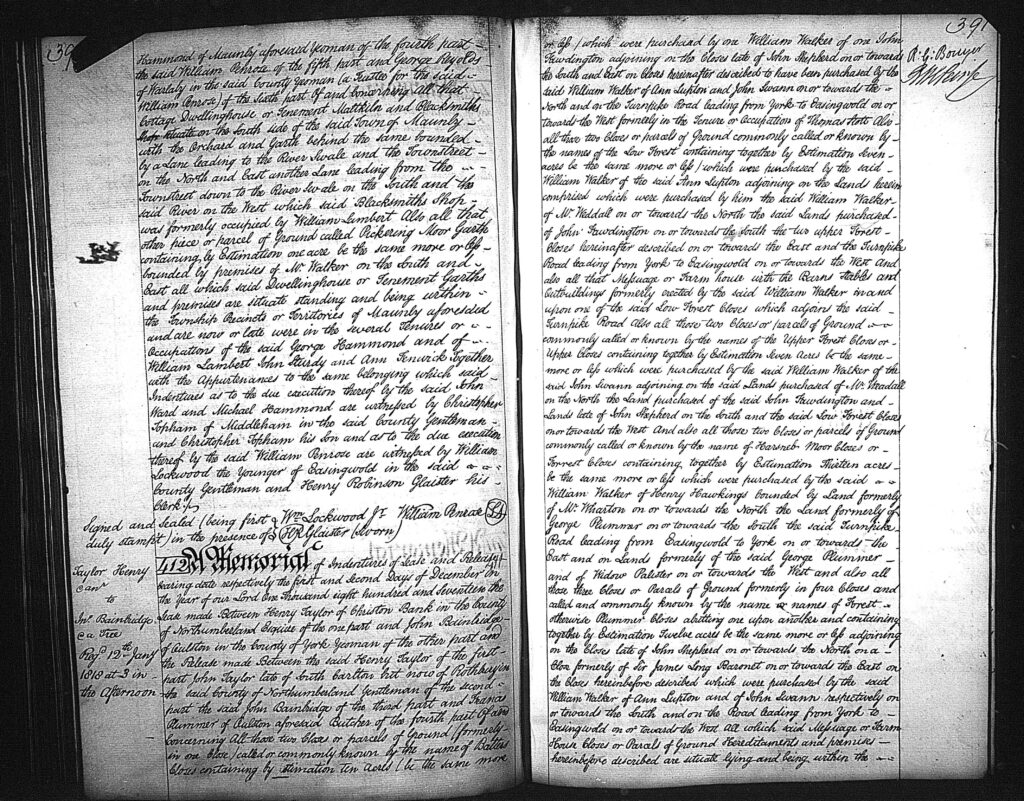 Hammond of Maunby aforesaid Yeoman of the fourth part
the said William Penrose of the fifth part and George Reynolds
of Warlaby in the said County Yeoman (a Trustee for the said
William Penrose) of the Sixth part Of and Concerning All that
Cottage Dwellinghouse or Tenement Maltkiln and Blacksmiths
Shop situate on the South side of the said Town of Maunby
with the Orchard and Garth behind the same bounded
by a Lane leading to the River Swale and the Townstreet
on the North and East another Lane leading from the
Townstreet down to the River Swale on the South and the
said River on the West which said Blacksmiths Shop
was formerly occupied by William Lambert Also all that
other piece or parcel of Ground called Pickering Moor Garth
containing by Estimation one acre be the same more or less
bounded by premises of Mr. Walker on the South and
East all which said Dwellinghouse or Tenement Garths
and premises are situate standing and being within
the Township Precincts or Territories of Maunby aforesaid
and are now or late were in the several Tenures or
Occupations of the said George Hammond and of
William Lambert John Sturdy and Ann Fenwick Together
with the Appurtenances to the same belonging which said
Indentures as to the due execution thereof by the said John
Ward and Michael Hammond are witnessed by Christopher
Topham of Middleham in the said County Gentleman
and Christopher Topham his Son and as to the due execution
thereof by the said William Penrose are witnessed by William
Lockwood the Younger of Easingwold in the said
County Gentleman and Henry Robinson Glaister his
Clerk
Signed and Sealed (being first Wm. Lockwood Jr. William Penrose LS
duly stampt) in the presence of HR Glaister Sworn)
Taylor Henry
to
Jno. Bainbridge
Regd. 12th Jany
1818 at 3 in
the Afternoon
412 A Memorial of Indentures of Lease and Release
bearing date respectively the first and second Days of December in
the Year of our Lord One Thousand eight hundred and Seventeen the
Lease made Between Henry Taylor of Christon Bank in the County
of Northumberland Esquire of the one part and John Bainbridge
of Oulston in the County of York Yeoman of the other part and
the Release made Between the said Henry Taylor of the first
part John Taylor late of South Carlton but now of Rothbury in
the said County of Northumberland Gentleman of the second
part the said John Bainbridge of the third part and Francis
Plummer of Oulston aforesaid Butcher of the fourth part Of and
concerning All those two Closes or parcels of Ground (formerly
in one Close) called or commonly known by the name of
Closes containing by Estimation ten Acres (be the same more
391
R. C. Bowyer
or less) which were purchased by one William Walker of one John
Fewdington adjoining on the Closes late of John Shepherd on or towards
the South and East on Closes hereinafter described to have been purchased by the
said William Walker of Ann Lupton and John Swann on or towards the
North and on the Turnpike Road leading from York to Easingwold on or
towards the West formerly in the Tenure or Occupation of Thomas Also
all those two Closes or parcels of Ground commonly called or known by
the names of the Low Forest containing together by Estimation Seven
acres (be the same more or less) which were purchased by the said
William Walker of the said Ann Lupton adjoining on the Lands herein
comprised which were purchased by him the said William Walker
of Mr. Waddall on or towards the North the said Lands purchased
of John Fewdington on or towards the South the two upper Forest
Closes hereinafter described on or towards the East and the Turnpike
Road leading from York to Easingwold on or towards the West And
also all that Messuage or Farm house with the Barns Stables and
Outbuildings formerly erected by the said William Walker in and
upon one of the said Low Forest Closes which adjoins the said
Turnpike Road also all those two Closes or parcels of Ground
commonly called or known by the names of the Upper Forest Closes or
Upper Closes containing together by Estimation Seven Acres be the same
more or less which were purchased by the said William Walker of the
said John Swann adjoining on the said Lands purchased of Mr. Waddall
on the North the Land purchased of the said John Fewdington and
Lands late of John Shepherd on the South and the said Low Forest Closes
on or towards the West And also all those two Closes or parcels of Ground
commonly called or known by the name of Moor Closes or
Forrest Closes containing together by Estimation Thirteen acres
be the same more or less which were purchased by the said
William Walker of Henry Hawkings bounded by Land formerly
of Mr. Wharton on or towards the North the Land formerly of
George Plummer on or towards the South the said Turnpike
Road leading from Easingwold to York on or towards the
East and on Lands formerly of the said George Plummer
and of Widow Palister on or towards the West and also all
those three Closes or Parcels of Ground formerly in four Closes and
called and commonly known by the name or names of Forest
otherwise Plummer Closes abutting one upon another and containing
together by Estimation Twelve acres be the same more or less adjoining
on the Closes late of John Shepherd on or towards the North on a
Close formerly of Sir James Long Baronet on or towards the East on
the Closes hereinbefore described which were purchased by the said
William Walker of Ann Lupton and of John Swann respectively on
or towards the South and on the Road leading from York to
Easingwold on or towards the West All which said Messuage or Farm
House Closes or Parcels of Ground Hereditaments and premises
hereinbefore described are situate lying and being within the